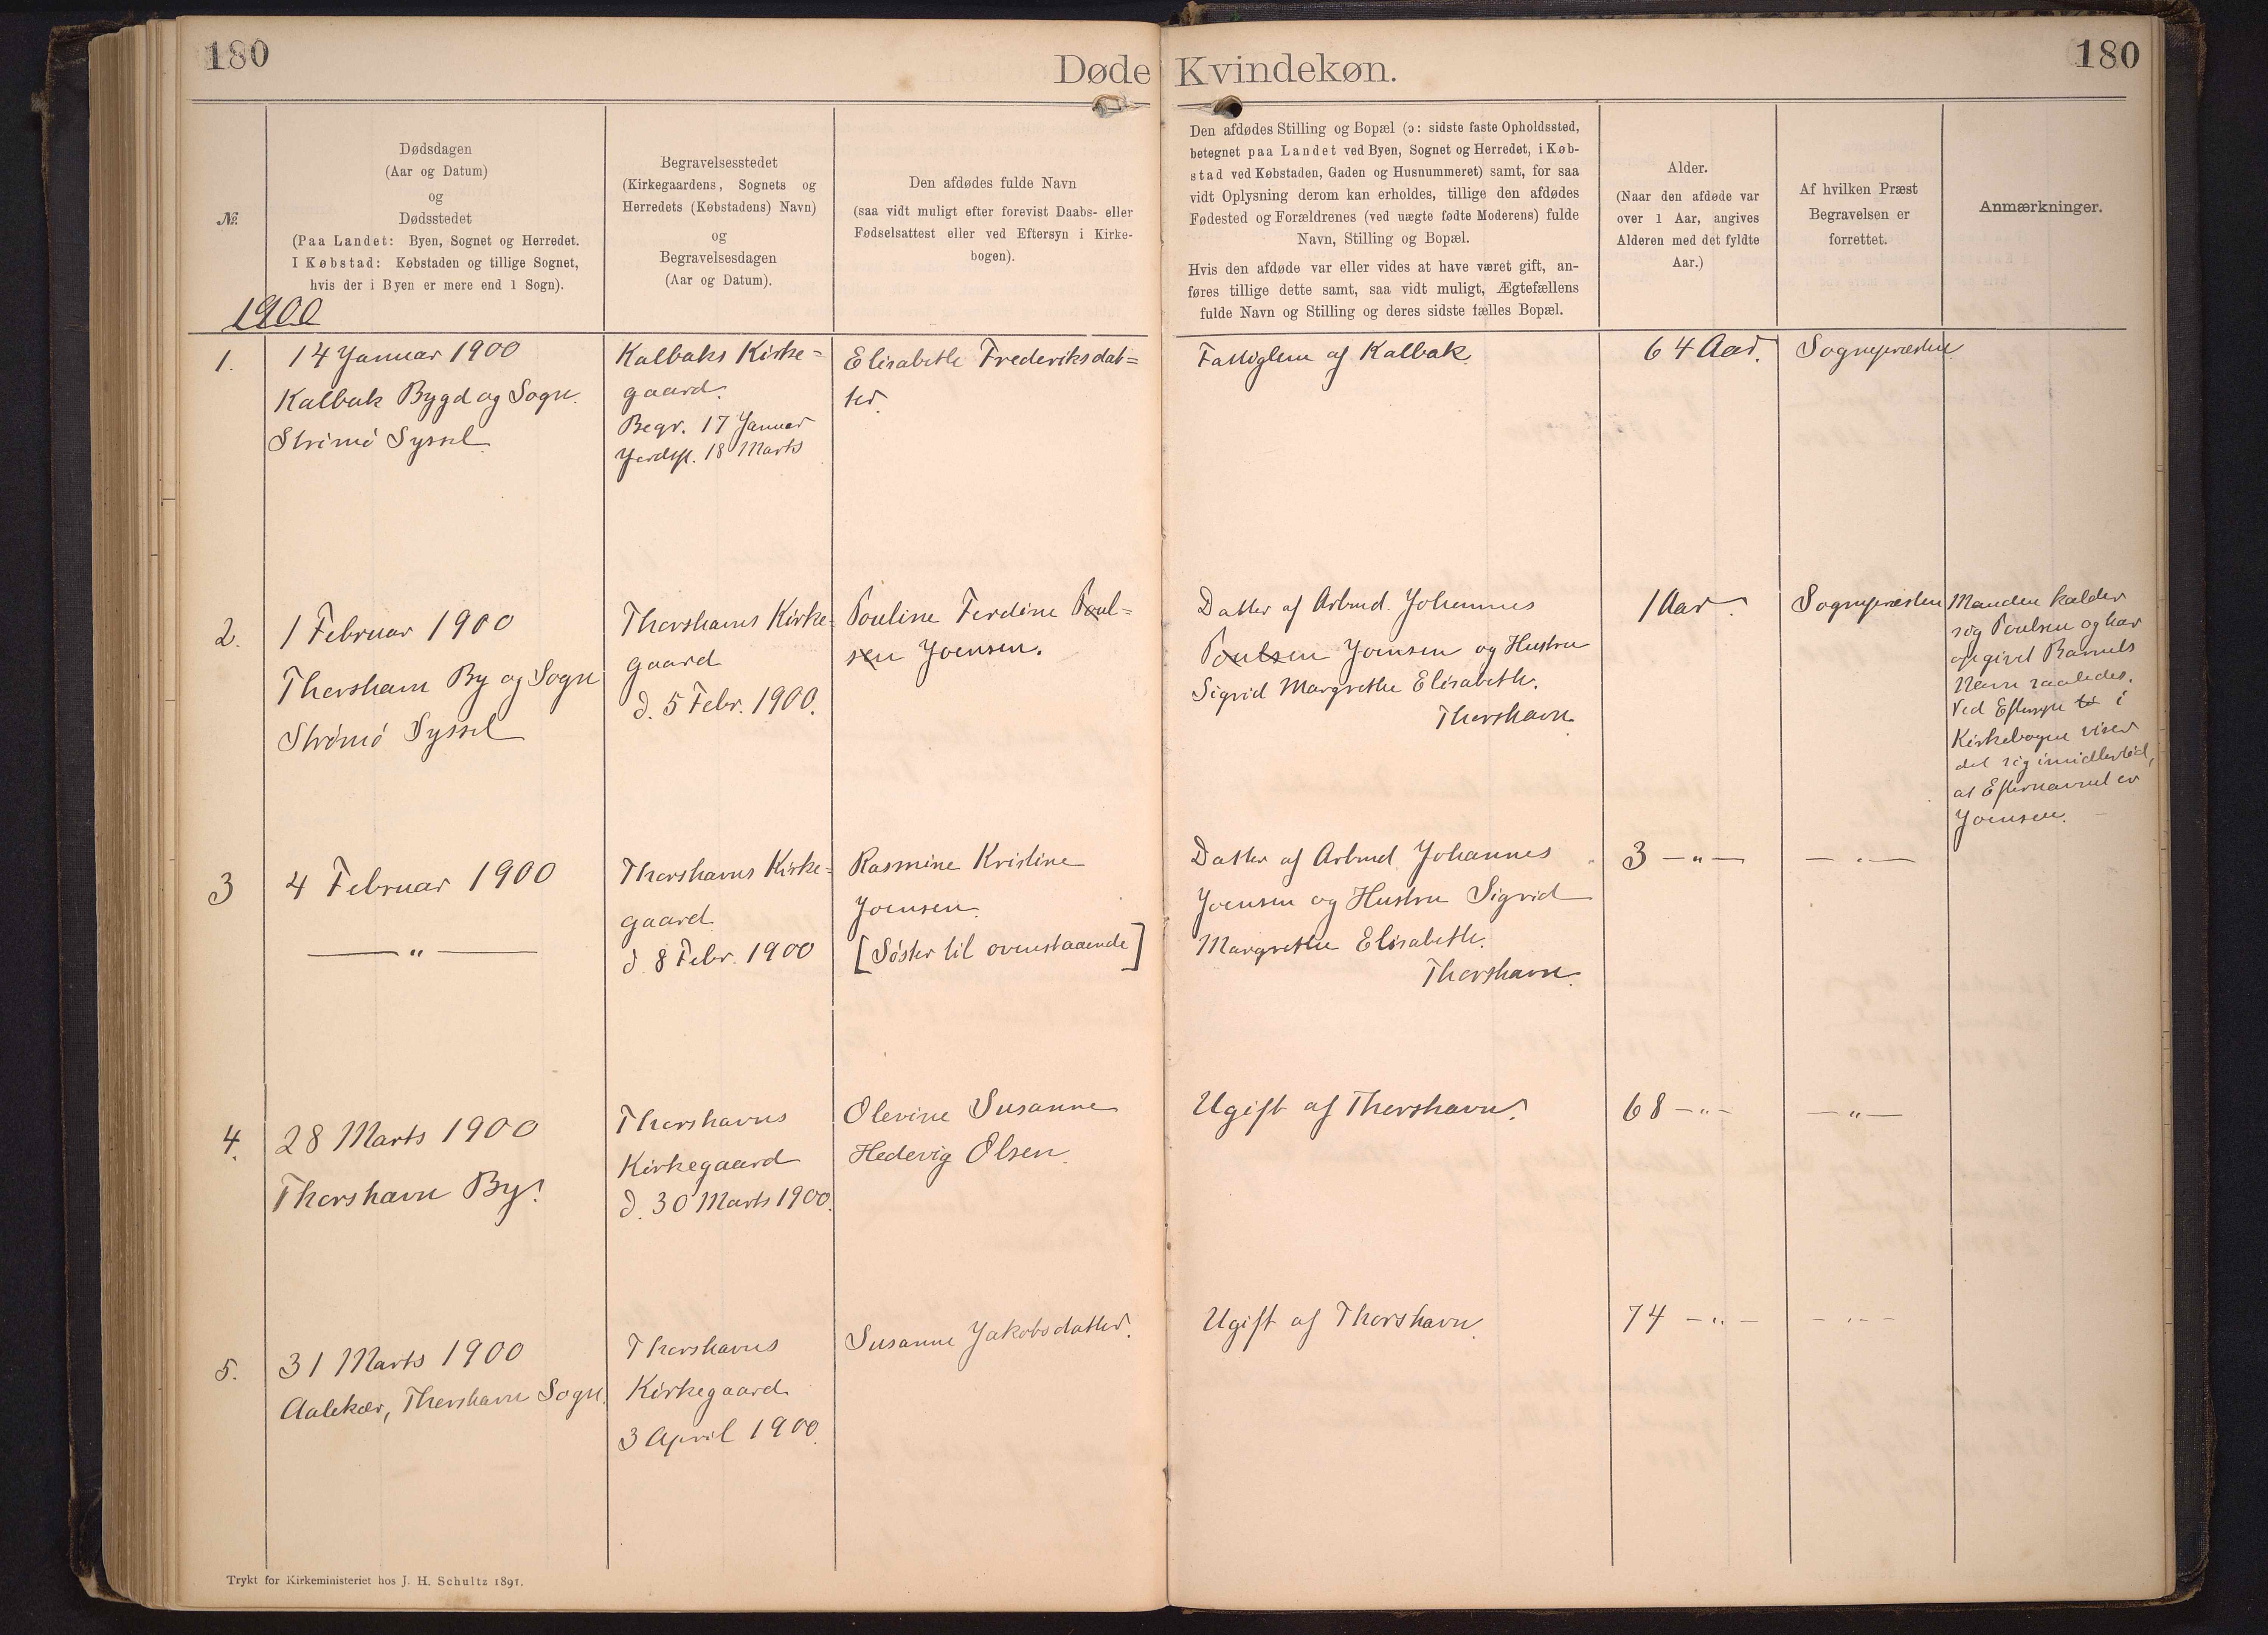 180
Døde Kvindekøn.
180
№.
Dødsdagen
(Aar og Datum)
og
Dødsstedet
(Paa Landet: Byen, Sognet og Herredet.
I Købstad: Købstaden og tillige Sognet,
hvis der i Byen er mere end 1 Sogn).
Begravelsesstedet
(Kirkegaardens, Sognets og
Herredets (Købstadens) Navn)
og
Begravelsesdagen
(Aar og Datum).
Den afdødes fulde Navn
(saa vidt muligt efter forevist Daabs- eller
Fødselsattest eller ved Eftersyn i Kirke-
bogen).
Den afdødes Stilling og Bopæl (ɔ: sidste faste Opholdssted,
betegnet paa Landet ved Byen, Sognet og Herredet, i Køb-
stad ved Købstaden, Gaden og Husnummeret) samt, for saa
vidt Oplysning derom kan erholdes, tillige den afdødes
Fødested og Forældrenes (ved uægte fødte Moderens) fulde
Navn, Stilling og Bopæl.
Hvis den afdøde var eller vides at have været gift, an-
føres tillige dette samt, saa vidt muligt, Ægtefællens
fulde Navn og Stilling og deres sidste fælles Bopæl.
Alder.
(Naar den afdøde var
over 1 Aar, angives
Alderen med det fyldte
Aar.)
Af hvilken Præst
Begravelsen er
forrettet.
Anmærkninger.
1900
1.
14 Januar 1900
Kalbak Bygd og Sogn.
Strømø Syssel
Kalbaks Kirke=
gaard.
Begr. 17 Januar
Jordsp. 18 Marts
Elisabeth Frederiksdat=
ter.
Fattiglem af Kalbak.
64 Aar.
Sognepræsten
2.
1 Februar 1900
Thorshavn By og Sogn
Strømø Syssel
Thorshavns Kirke=
gaard
d. 5 Febr. 1900.
Pouline Ferdine Poul=
sen Joensen.
Datter af Arbmd. Johannes
Poulsen Joensen og Hustru
Sigrid Margrethe Elisabeth.
Thorshavn.
1 Aar.
Sognepræsten
Manden kalder
sig Poulsen og har
opgivet Barnets
Navn saaledes.
Ved Eftersyn ti i
Kirkebogen viser
det sig imidlertid,
at Efternavnet er
Joensen. –
3
4 Februar 1900
— " —
Thorshavns Kirke=
gaard
d. 8 Febr. 1900
Rasmine Kristine
Joensen.
[Søster til ovenstaaende]
Datter af Arbmd Johannes
Joensen og Hustru Sigrid
Margrethe Elisabeth.
Thorshavn.
3 — " —
— " —
4.
28 Marts 1900
Thorshavn By.
Thorshavns
Kirkegaard
d. 30 Marts 1900.
Olevine Susanne
Hedevig Olsen.
Ugift af Thorshavn.
68 — " —
— " —
5.
31 Marts 1900
Aalekær, Thorshavn Sogn.
Thorshavns
Kirkegaard
3 April 1900.
Susanne Jakobsdatter.
Ugift af Thorshavn.
74 — " —
— " —
Trykt for Kirkeministeriet hos J. H. Schultz 1891.